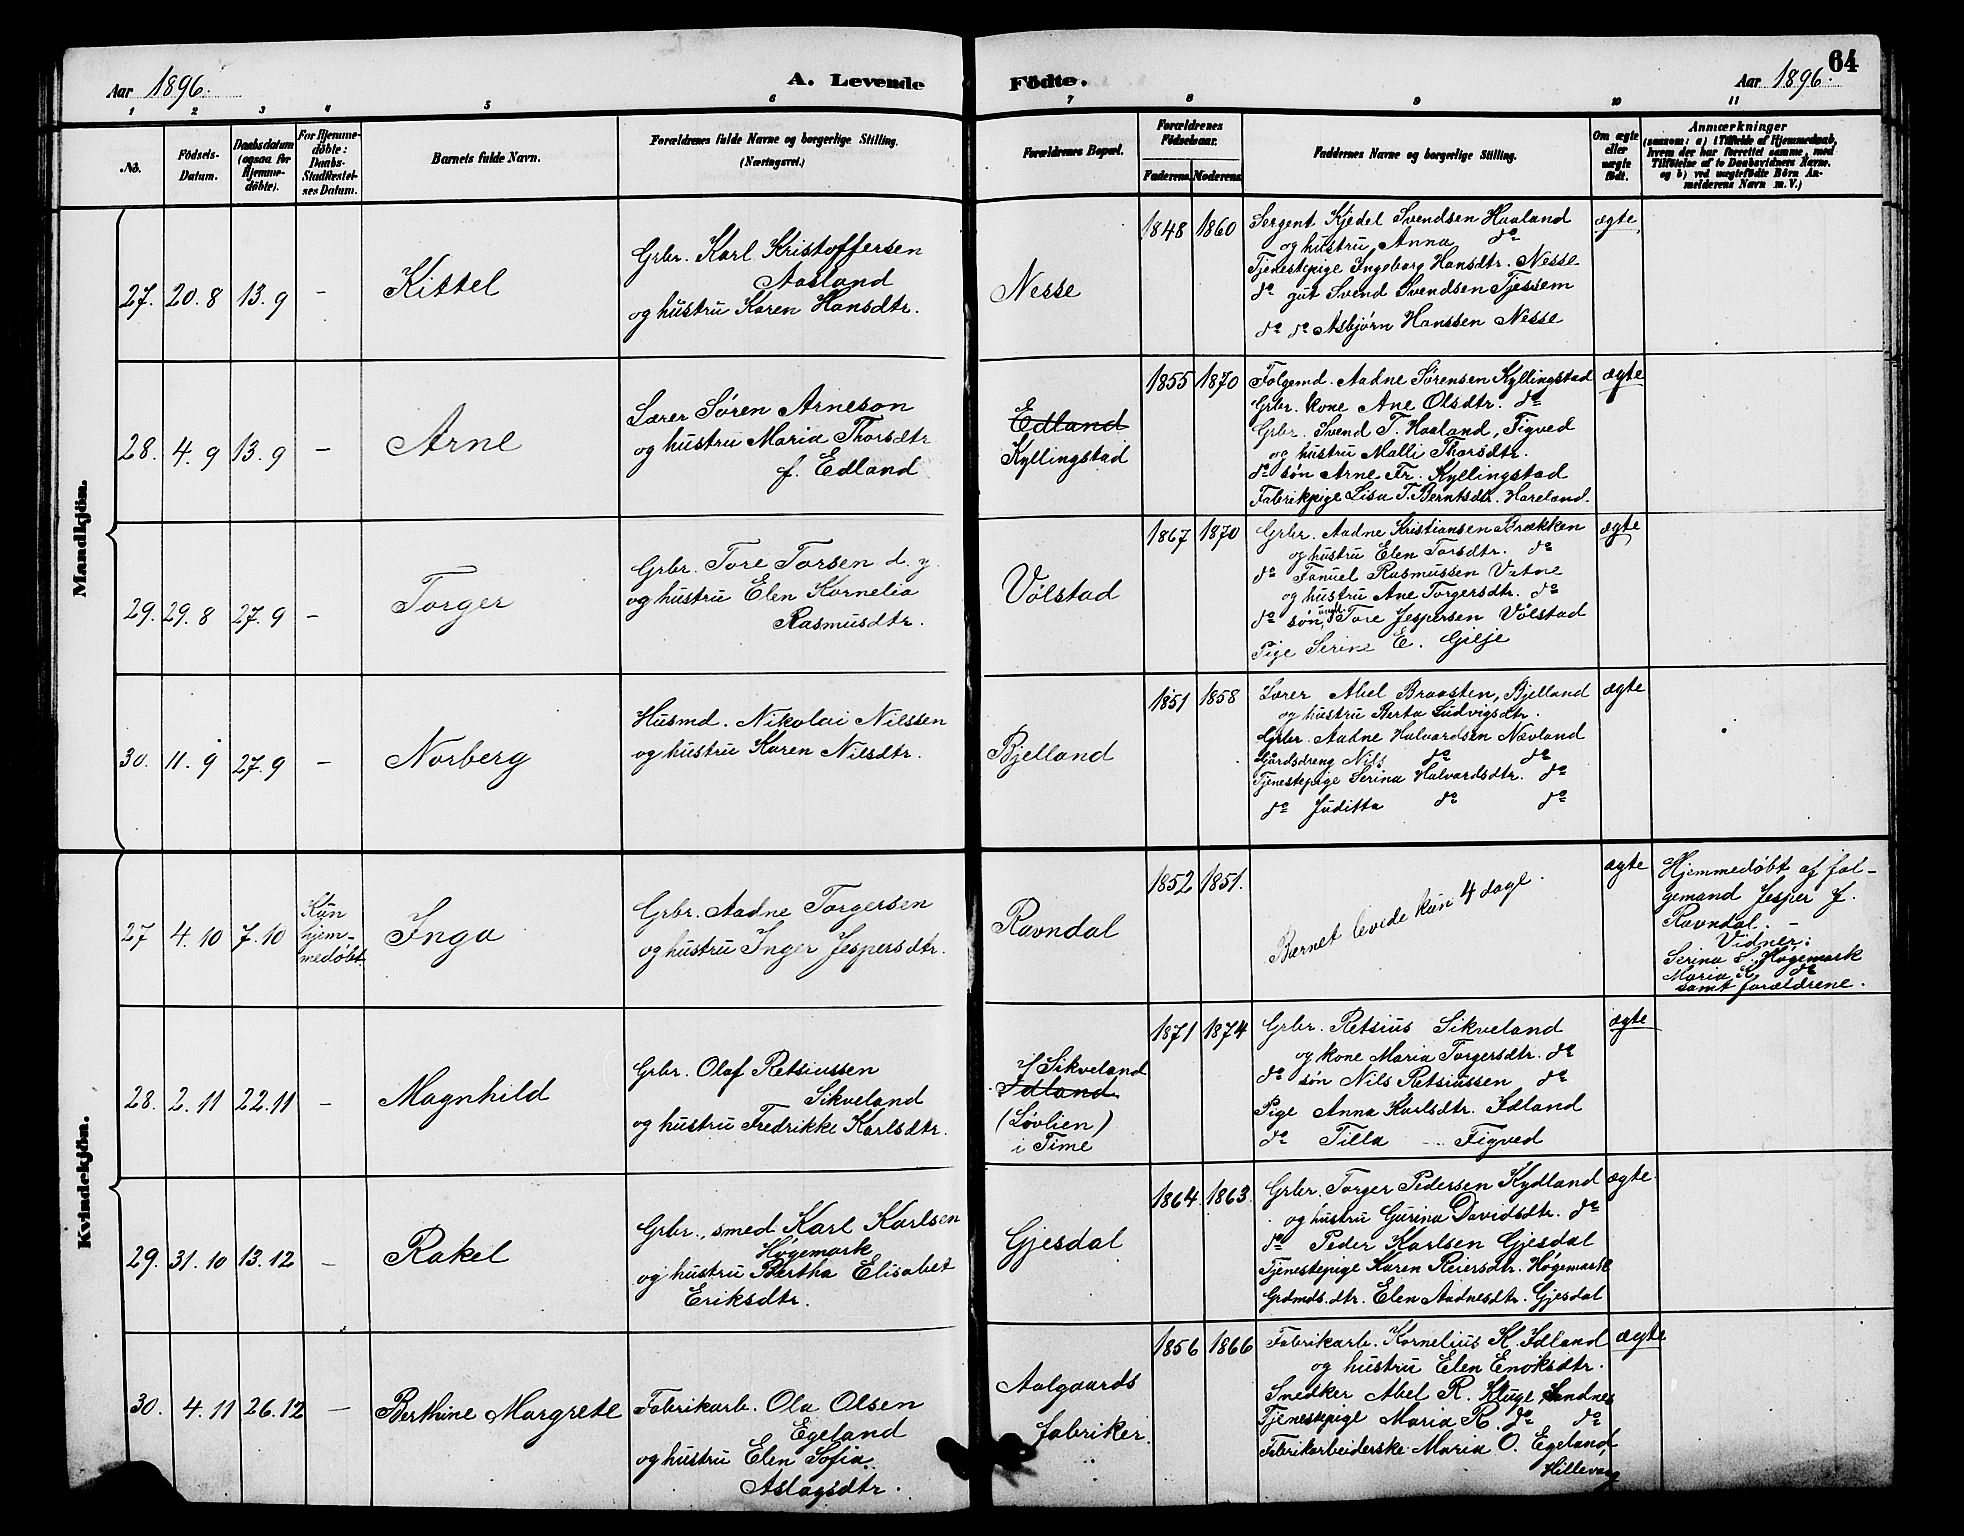 Aar 1896.
A. Levende Födte.
Aar 1896.
64
1 2 3 4 5 6 7 8 9 10 11
No.
Födsels-
Datum.
Daabsdatum
(ogsaa for
Hjemme-
döbte).
For Hjemme-
döbte:
Daabs-
Stadfæstel-
ses Datum.
Barnets fulde Navn.
Forældrenes fulde Navne og borgerlige Stilling.
(Næringsvei.)
Forældrenes Bopæl.
Forældrenes
Födselsaar.
Faderens. Moderens.
Faddernes Navne og borgerlige Stilling.
Om ægte
eller
uægte
födt.
Anmærkninger
(saasom: a) i Tilfælde af Hjemmedaab,
hvem der har forrettet samme, med
Tilföielse af to Daabsvidners Navne.
og b) ved uægtefödte Börn An-
melderens Navn m. V.)
Mandkjön.
27. 20. 8 13. 9 –
Kittel
Grbr. Karl Kristoffersen
Aasland
og hustru Karen Hansdtr.
Nesse
1848 1860
Sergent Kjedel Svendsen Haaland
og hustru Anna do
Tjenestepige Ingeborg Hansdtr. Nesse
do gut Svend Svendsen Tjessem
do do Asbjørn Hanssen Nesse
ægte
28. 4. 9 13. 9 –
Arne
Lærer Søren Arneson
og hustru Maria Thorsdtr
f. Edland
E
Edland
Kyllingstad
1855 1870
Folgemd. Aadne Sørensen Kyllingstad
Grbr. kone Ane Olsdtr. do
Grbr. Svend T. Haaland, Figved
og hustru Malli Thorsdtr.
do søn Arne Fr. Kyllingstad
Fabrikpige Lisa T. Berntsdtr. Hareland.
ægte
29. 29. 8 27. 9 –
Torger
Grbr. Tore Torsen d. y.
og hustru Elen Kornelia
Rasmusdtr.
Vølstad
1867 1870
Grbr. Aadne Kristiansen Brækken
og hustru Elen Torsdtr. do
do Fanuel Rasmussen Vatne
og hustru Ane Torgersdtr. do
do søn, Tore Jespersen Vølstad
Pige Serine E. Gilje
ægte
30. 11. 9 27. 9 –
Norberg
Husmd. Nikolai Nilssen
og hustru Karen Nilsdtr.
Bjelland
1851 1858
Lærer Abel Braasten, Bjelland
og hustru Berta Ludvigsdtr.
Grbr. Aadne Halvardsen Nævland
Gårdsdreng Nils do do
Tjenestepige Serina Halvardsdtr. do
do Juditta do do
ægte
Kvindekjön.
27 4. 10 7. 10
Kun
hjem-
medøbt.
Inga
Grbr. Aadne Torgersen
og hustru Inger Jespersdtr.
Ravndal
1852 1851.
Barnet levede kun 4 dage.
ægte
Hjemmedøbt af fol-
gemand Jesper J.
Ravndal. –
Vidner:
Serina S. Høgemark
Maria K. do
samt forældrene.
28. 2. 11 22. 11 –
Magnhild
Grbr. Olaf Retsiussen
Sikveland
og hustru Fredrikke Karlsdtr.
Sikveland
Idland
(Løvlien)
i Time
1871 1874
Grbr. Retsius Sikveland
og kone Maria Torgersdtr. do
do søn Nils Retsiussen do
Pige Anna Karlsdtr. Idland
do Tilla – Figved
ægte
29. 31. 10 13. 12 –
Rakel
Grbr., smed Karl Karlsen
Høgemark
og hustru Bertha Elisabet
Eriksdtr.
Gjesdal
1864 1863
Grbr. Torger Pedersen Kydland
og hustru Gurina Davidsdtr. do
do Peder Karlsen Gjesdal
Tjenestepige Karen Reiersdtr. Høgemark
Grdmds. dtr. Elen Aadnesdtr. Gjesdal
ægte.
30. 4. 11 26. 12 –
Berthine Margrete
Fabrikarb. Ola Olsen
Egeland
og hustru Elen Sofia
Aslagsdtr.
Aalgaards
fabriker.
1856 1866
Fabrikarb. Kornelius K. Idland
og hustru Elen Enoksdtr.
Snedker Abel R. Kluge, Sandnes
Tjenestepige Maria R. do do
Fabrikarbeiderske Maria O. Egeland
Hillevaag
ægte